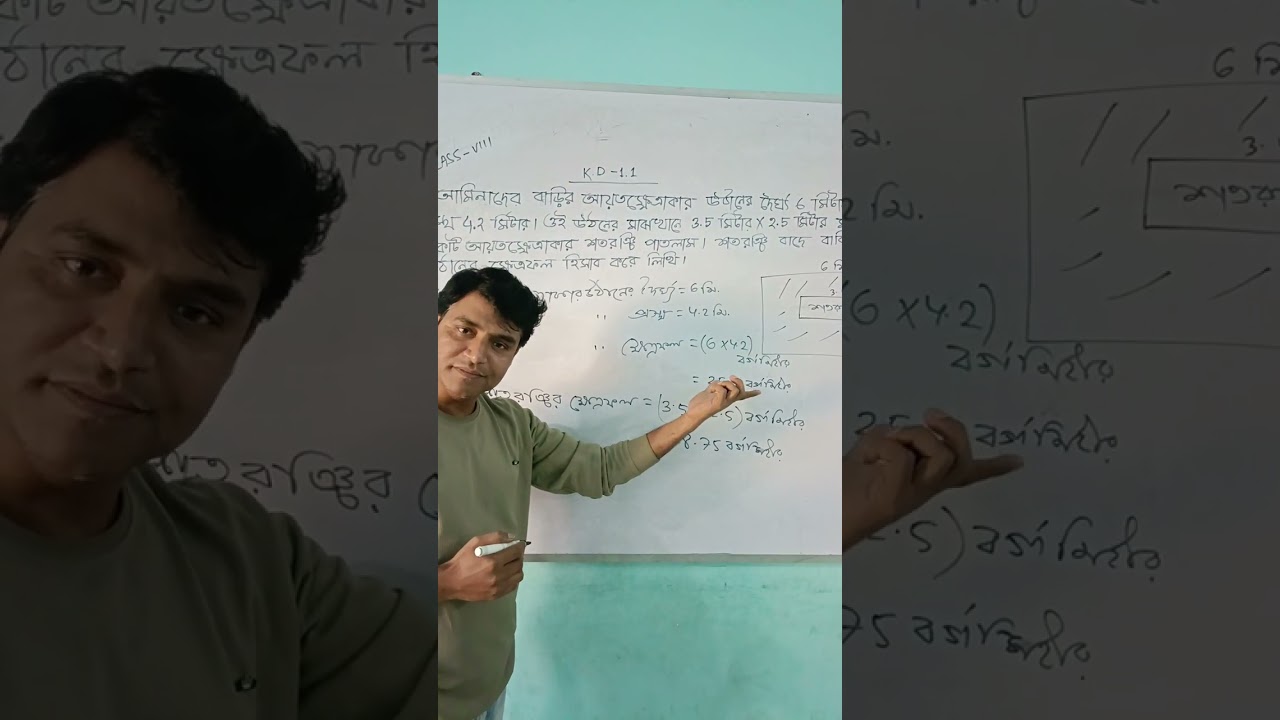 ASS-VIII
KD-1.1
আমিনাদের বাড়ির আয়তক্ষেত্রাকার উঠানের দৈর্ঘ্য 6 মিটা
4.2 মিটার। ওই উঠানের মাঝখানে 3.5 মিটার X 2.5 মিটার
কটি আয়তক্ষেত্রাকার শতরঞ্চি পাতলাম। শতরঞ্চি বাদে বাকি
ঠানের ক্ষেত্রফল হিসাব করে লিখি।
উঠানের দৈর্ঘ্য = 6 মি.
" প্রস্থ = 4.2 মি.
" ক্ষেত্রফল = (6 X 4.2)
বর্গমিটার
= বর্গমিটার
তরঞ্চির ক্ষেত্রফল = (3.5 .5) বর্গমিটার
8.75 বর্গমিটার
6 মি
3.
শতর